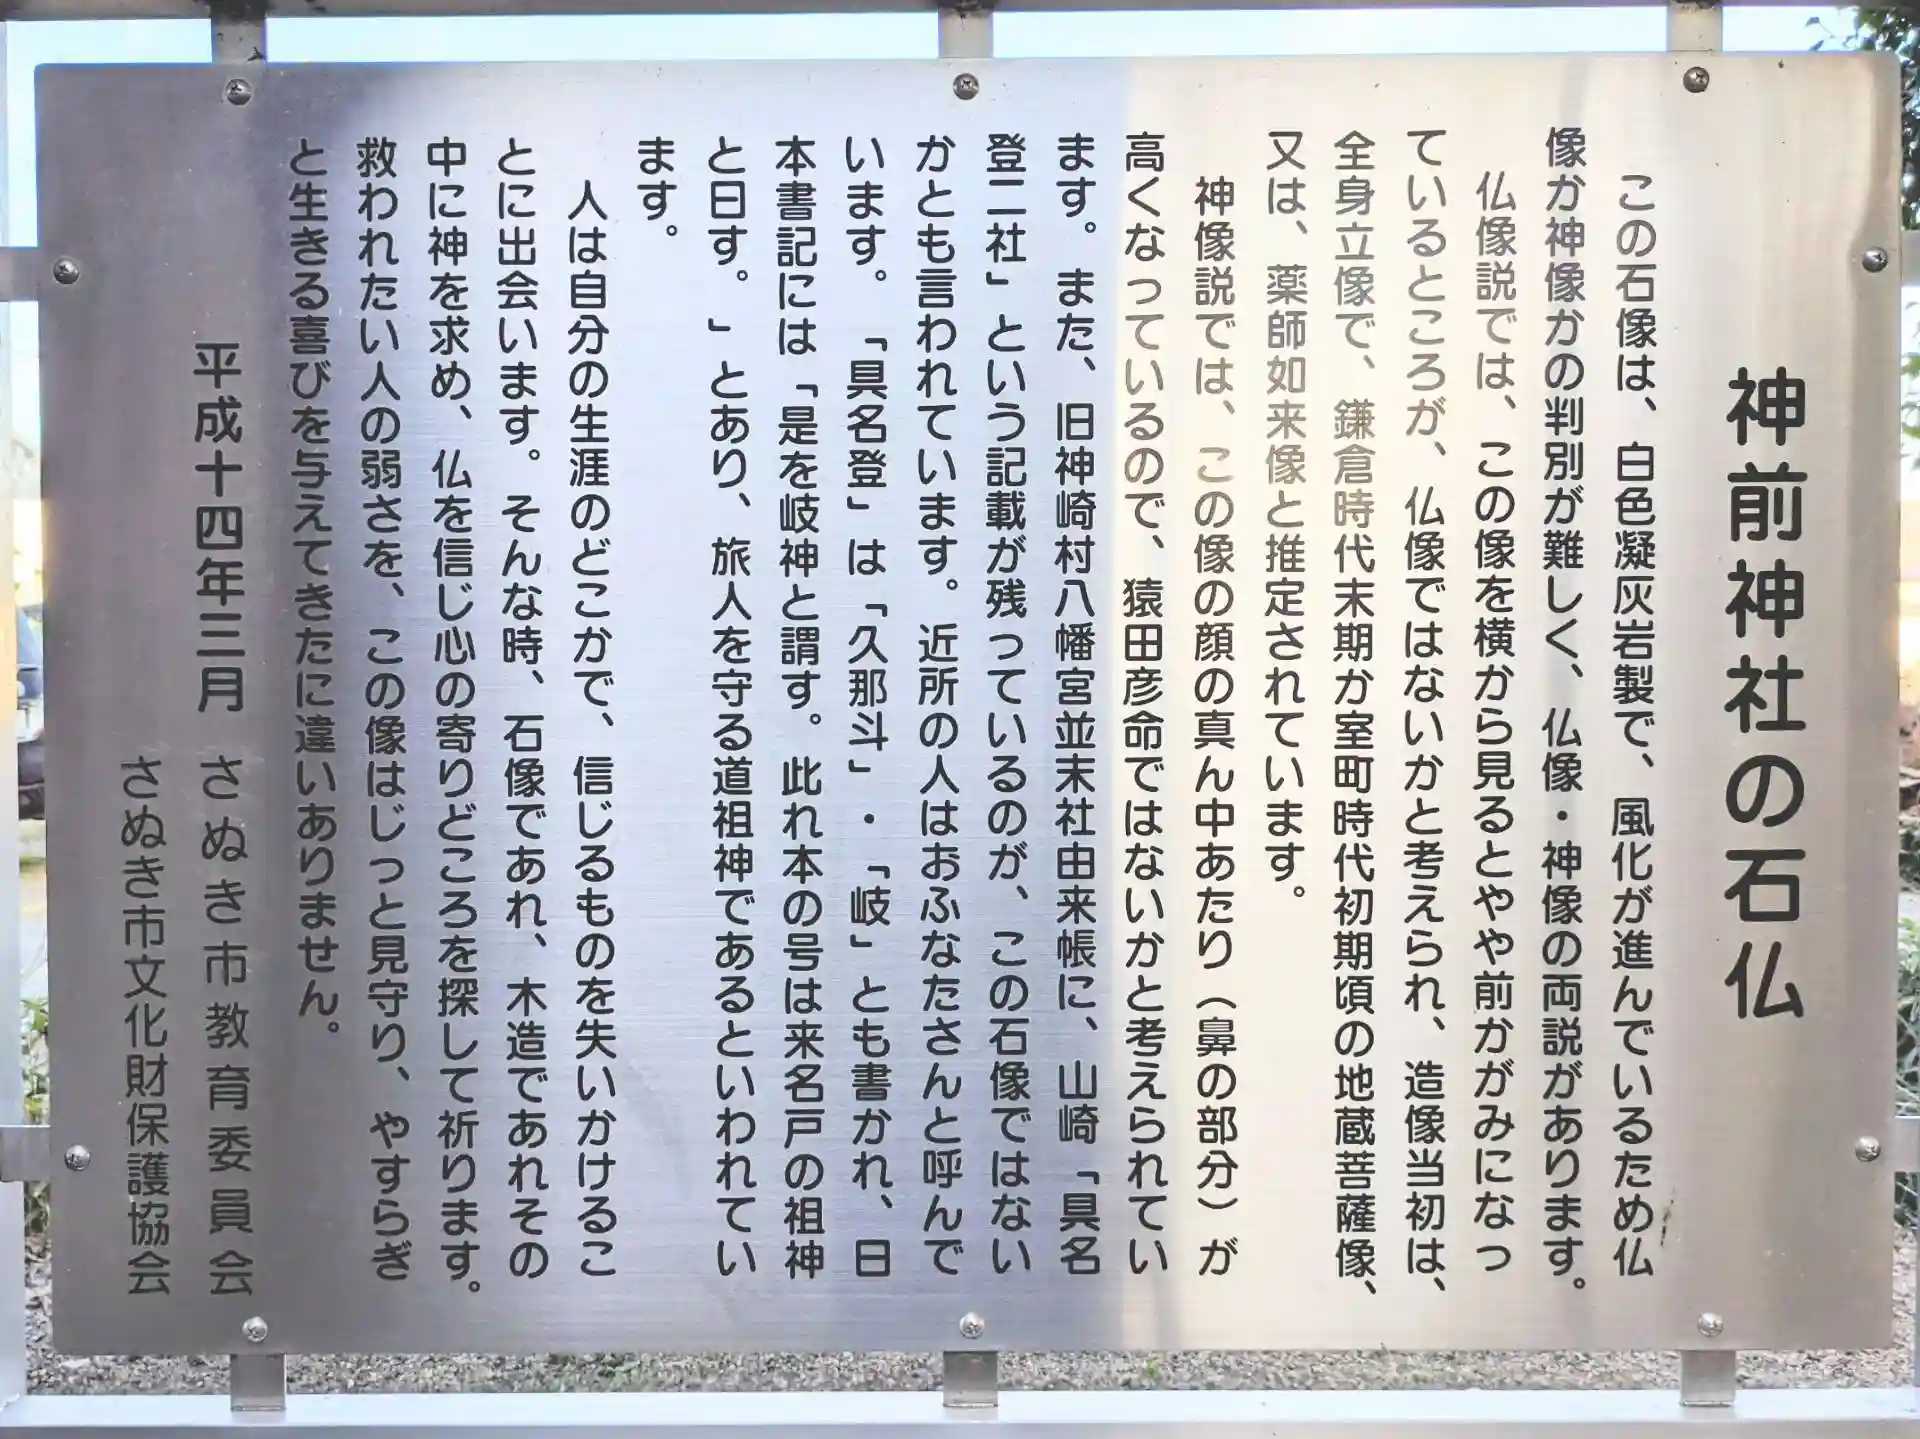 神前神社の石仏
この石像は、白色凝灰岩製で、風化が進んでいるため仏
像か神像かの判別が難しく、仏像・神像の両説があります。
仏像説では、この像を横から見るとやや前かがみになっ
ているところが、仏像ではないかと考えられ、造像当初は、
全身立像で、鎌倉時代末期か室町時代初期頃の地蔵菩薩像、
又は、薬師如来像と推定されています。
神像説では、この像の顔の真ん中あたり（鼻の部分）が
高くなっているので、猿田彦命ではないかと考えられてい
ます。また、旧神崎村八幡宮並末社由来帳に、山崎「具名
登二社」という記載が残っているのが、この石像ではない
かとも言われています。近所の人はおふなたさんと呼んで
います。「具名登」は「久那斗」・「岐」とも書かれ、日
本書記には「是を岐神と謂す。此れ本の号は来名戸の祖神
と日す。」とあり、旅人を守る道祖神であるといわれてい
ます。
人は自分の生涯のどこかで、信じるものを失いかけるこ
とに出会います。そんな時、石像であれ、木造であれその
中に神を求め、仏を信じ心の寄りどころを探して祈ります。
救われたい人の弱さを、この像はじっと見守り、やすらぎ
と生きる喜びを与えてきたに違いありません。
平成十四年三月　さぬき市教育委員会
さぬき市文化財保護協会